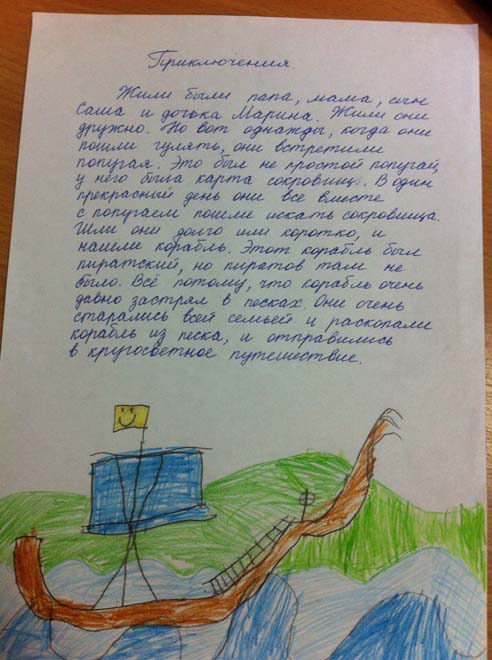 Приключения.
Жили были папа, мама, сын
Саша и дочька Марина. Жили они
дружно. Но вот однажды, когда они
пошли гулять, они встретили
попугая. Это был не простой попугай,
у него была карта сокровищь. В один
прекрасный день они все вместе
с попугаем пошли искать сокровища.
Шли они долго или коротко, и
нашли корабль. Этот корабль был
пиратский, но пиратов там не
было. Всё потому, что корабль очень
давно застрял в песках. Они очень
старались всей семьей и раскопали
корабль из песка, и отправились
в кругосветное путешествие.